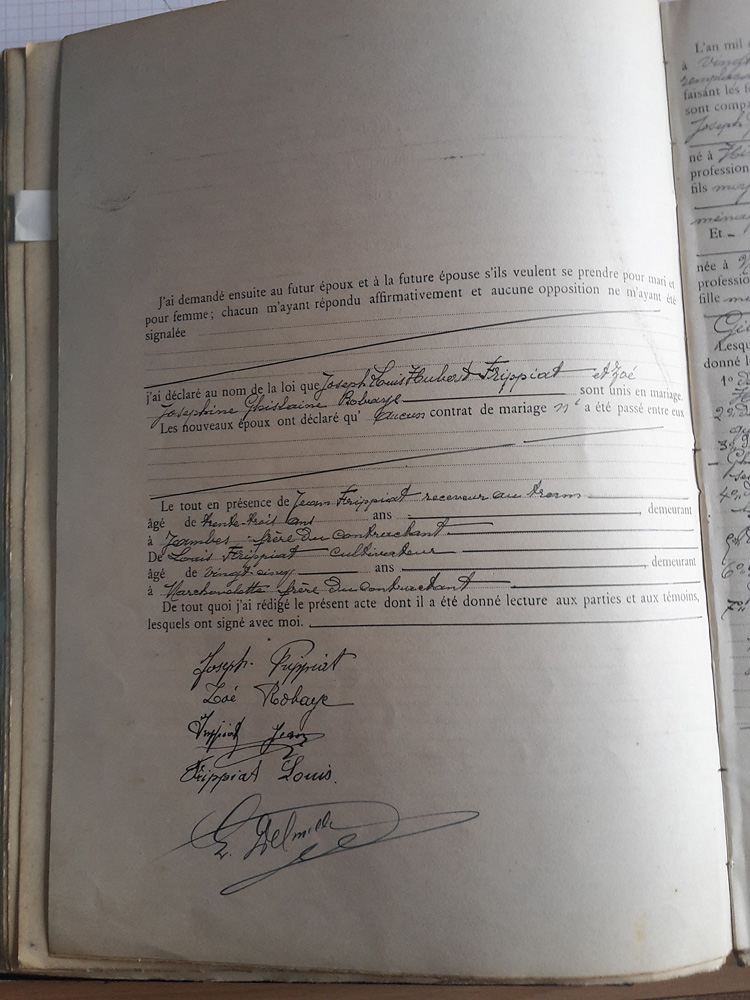 J'ai demandé ensuite au futur époux et à la future épouse s'ils veulent se prendre pour mari et
pour femme; chacun m'ayant répondu affirmativement et aucune opposition ne m'ayant été
signalée
j'ai déclaré au nom de la loi que Joseph Louis Hubert Frippiat et Zoé
Joséphine Ghislaine Robaye sont unis en mariage.
Les nouveaux époux ont déclaré qu' aucun contrat de mariage n' a été passé entre eux
Le tout en présence de Jean Frippiat receveur au trams
âgé de trente-trois ans ans , demeurant
à Jambes frère du contractant
De Louis Frippiat cultivateur
âgé de vingt-cinq ans , demeurant
à Marchovelette frère du contractant
De tout quoi j'ai rédigé le présent acte dont il a été donné lecture aux parties et aux témoins,
lesquels ont signé avec moi.
Joseph Frippiat
Zoé Robaye
Frippiat Jean
Frippiat Louis.
L'an mil
à
faisant les f
sont comp
Joseph
né à
profession
fils
Et
née à
professio
fille
Lesqu
donné l
1°
2°
3°
4°
6°
7°